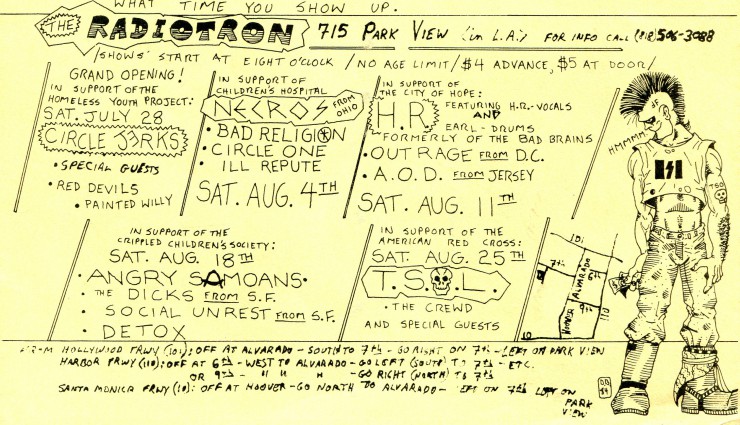 WHAT TIME YOU SHOW UP.
THE RADIOTRON 715 PARK VIEW (in L.A.) FOR INFO CALL (818) 506-3088
/SHOWS START AT EIGHT O'CLOCK / NO AGE LIMIT / $4 ADVANCE, $5 AT DOOR /
GRAND OPENING!
IN SUPPORT OF THE
HOMELESS YOUTH PROJECT:
SAT. JULY 28
CIRCLE J3RKS
• SPECIAL GUESTS
• RED DEVILS
• PAINTED WILLY
IN SUPPORT OF
CHILDREN'S HOSPITAL
NECROS FROM OHIO
• BAD RELIGION
• CIRCLE ONE
• ILL REPUTE
SAT. AUG. 4TH
IN SUPPORT OF
THE CITY OF HOPE:
H.R. FEATURING H.R.-VOCALS
AND
EARL-DRUMS
FORMERLY OF THE BAD BRAINS
• OUTRAGE FROM D.C.
• A.O.D. FROM JERSEY
SAT. AUG. 11TH
HMMMM
TSOL
IN SUPPORT OF THE
CRIPPLED CHILDREN'S SOCIETY:
SAT. AUG 18TH
• ANGRY SAMOANS •
• THE DICKS FROM S.F.
• SOCIAL UNREST FROM S.F.
• DETOX
IN SUPPORT OF THE
AMERICAN RED CROSS:
SAT. AUG 25TH
T.S.O.L.
• THE CREWD
AND SPECIAL GUESTS
101
7th
ALVARADO
6th
9th
HOOVER
110
10
FROM HOLLYWOOD FRWY (101): OFF AT ALVARADO - SOUTH TO 7th - GO RIGHT ON 7th - LEFT ON PARK VIEW
HARBOR FRWY (110): OFF AT 6th - WEST TO ALVARADO - GO LEFT (SOUTH) TO 7th - ETC.
OR 9th - " " " - GO RIGHT (NORTH) TO 7th
SANTA MONICA FRWY (10): OFF AT HOOVER - GO NORTH TO ALVARADO - LEFT ON 7th LEFT ON
PARK
VIEW